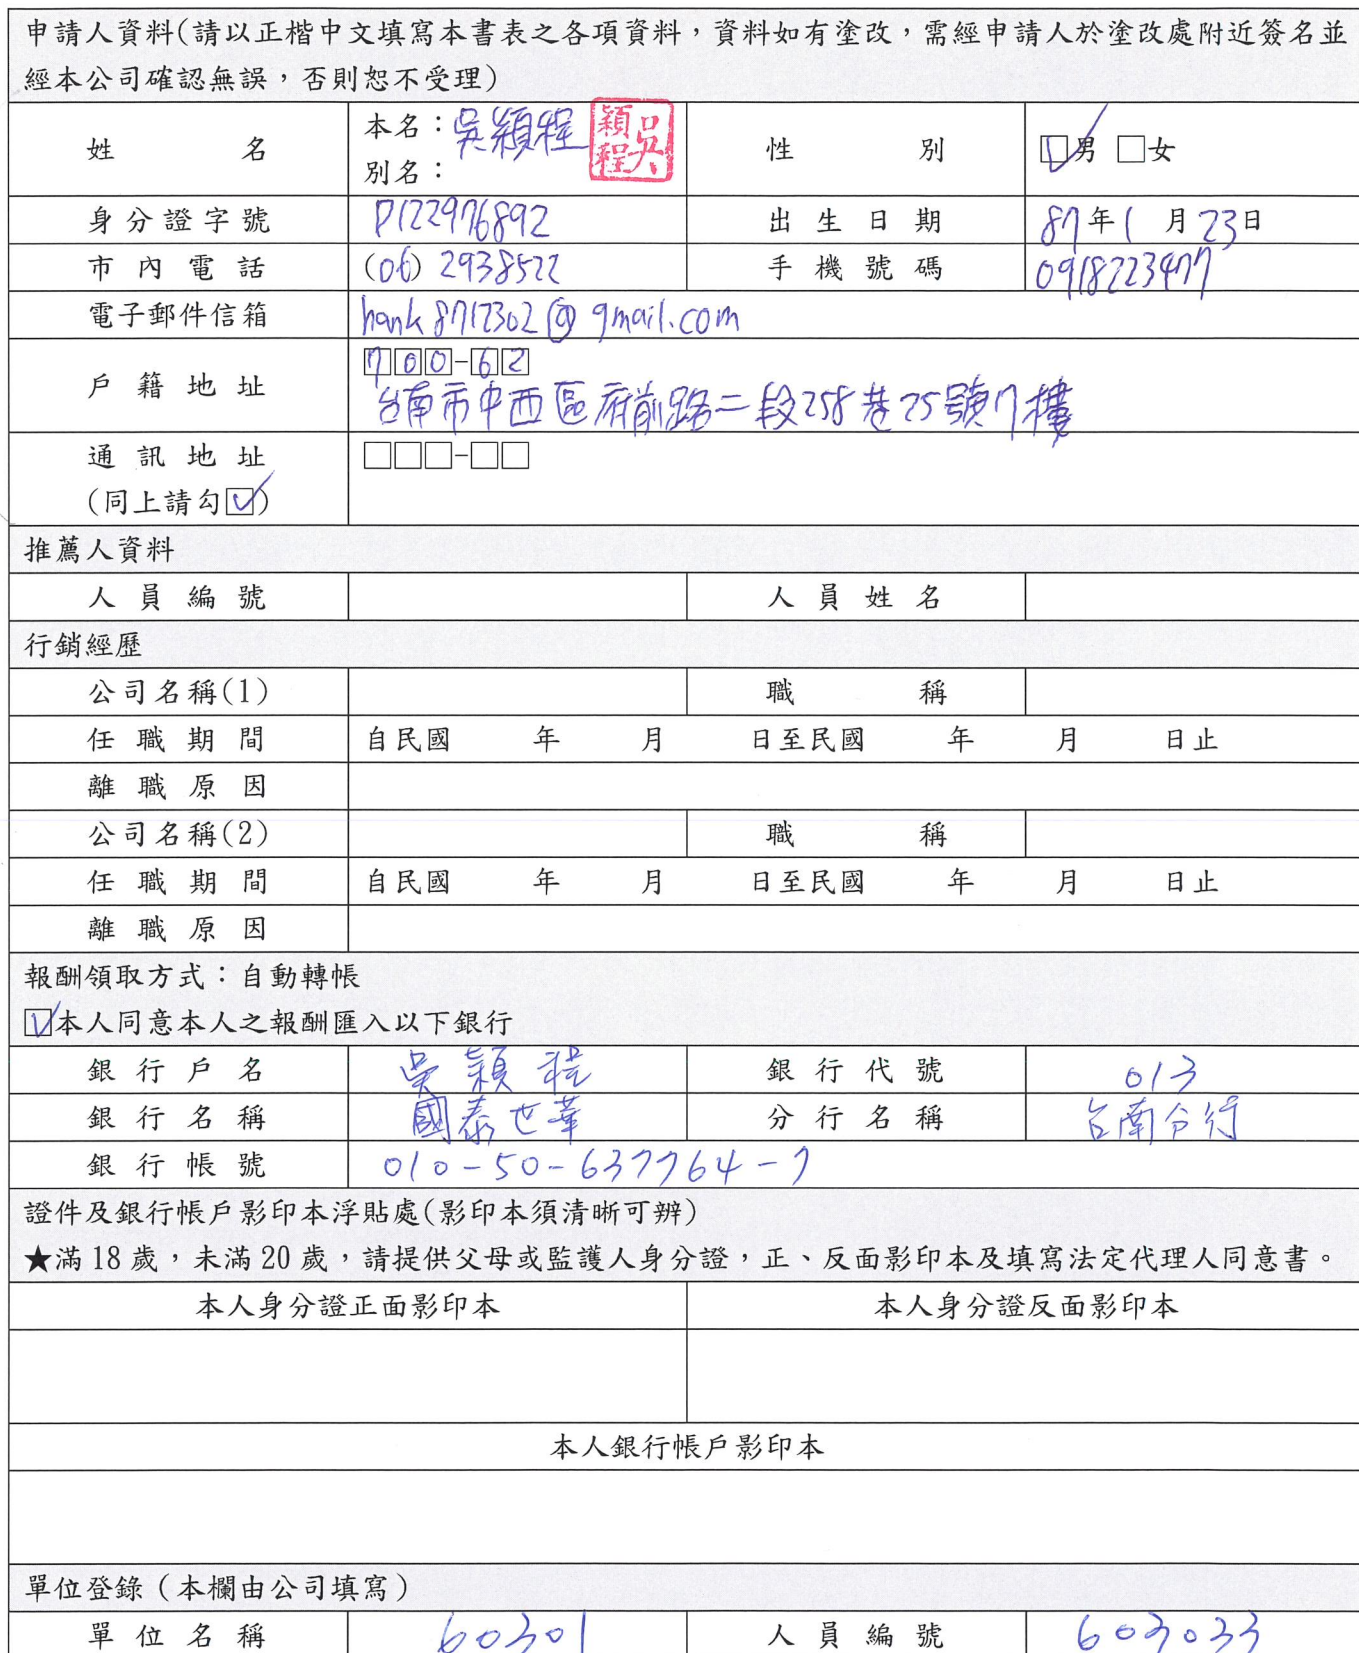 申請人資料(請以正楷中文填寫本書表之各項資料，資料如有塗改，需經申請人於塗改處附近簽名並
經本公司確認無誤，否則恕不受理)
姓名 本名：吳穎程 吳穎程 性別 ☑男 □女
別名：
身分證字號 P122976892 出生日期 87年1月23日
市內電話 (06) 2938522 手機號碼 0918223477
電子郵件信箱 hank8712302@gmail.com
戶籍地址 700-62
台南市中西區府前路二段258巷25號7樓
通訊地址 □□□-□□
(同上請勾☑)
推薦人資料
人員編號 人員姓名
行銷經歷
公司名稱(1) 職稱
任職期間 自民國 年 月 日至民國 年 月 日止
離職原因
公司名稱(2) 職稱
任職期間 自民國 年 月 日至民國 年 月 日止
離職原因
報酬領取方式：自動轉帳
☑本人同意本人之報酬匯入以下銀行
銀行戶名 吳穎程 銀行代號 013
銀行名稱 國泰世華 分行名稱 台南分行
銀行帳號 010-50-637764-7
證件及銀行帳戶影印本浮貼處(影印本須清晰可辨)
★滿18歲，未滿20歲，請提供父母或監護人身分證，正、反面影印本及填寫法定代理人同意書。
本人身分證正面影印本 本人身分證反面影印本
本人銀行帳戶影印本
單位登錄（本欄由公司填寫）
單位名稱 60301 人員編號 603033